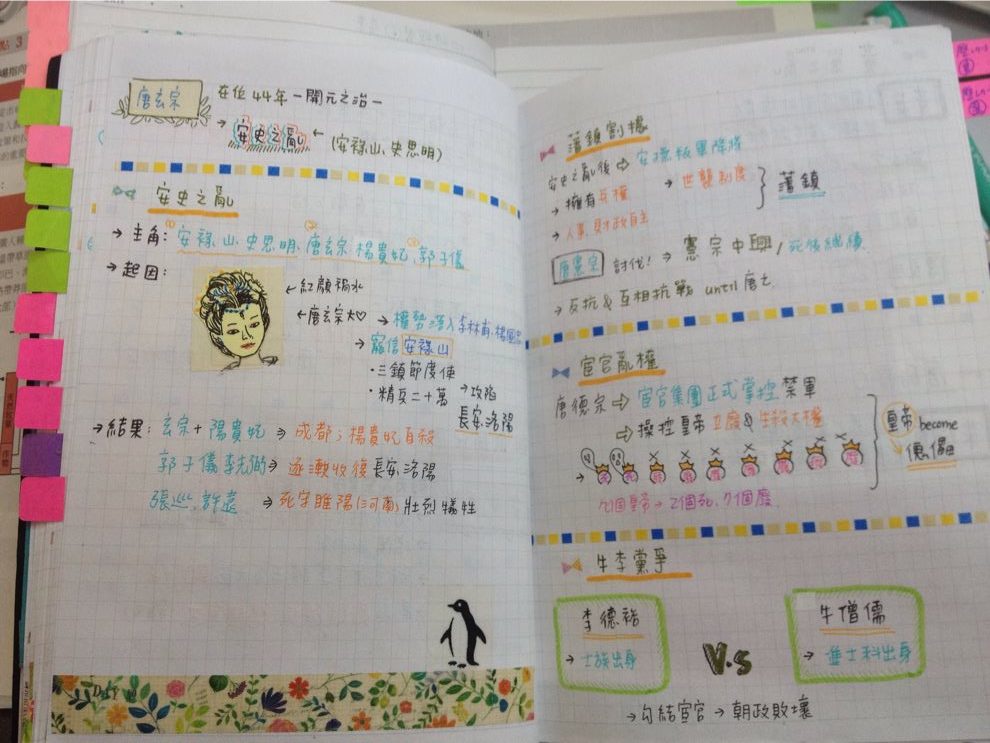 唐玄宗 在位44年－開元之治－
→安史之亂←(安祿山、史思明)
安史之亂
→主角：安祿山、史思明、唐玄宗、楊貴妃、郭子儀
→起因：
←紅顏禍水
←唐玄宗大♡ →權勢落入李林甫、楊國忠
→寵信安祿山
・三鎮節度使
・精兵二十萬 →攻陷
長安、洛陽
→結果：玄宗＋陽貴妃⇒成都；楊貴妃自殺
郭子儀李光弼⇒逐漸收復長安、洛陽
張巡、許遠⇒死守睢陽(河南)壯烈犧牲
藩鎮割據
安史之亂後⇨安撫叛軍降將
→擁有兵權 →世襲制度
→人事、財政自主
藩鎮
唐憲宗 討伐! →憲宗中興/死後繼續
→反抗&互相抗戰 until 唐亡
宦官亂權
唐德宗⇨宦官集團正式掌控禁軍
⇨操控皇帝立廢&生殺大權
皇帝 become
傀儡
九個皇帝→2個死、7個廢
牛李黨爭
李德裕
→士族出身
V.S
牛僧儒
→進士科出身
→勾結宦官→朝政敗壞